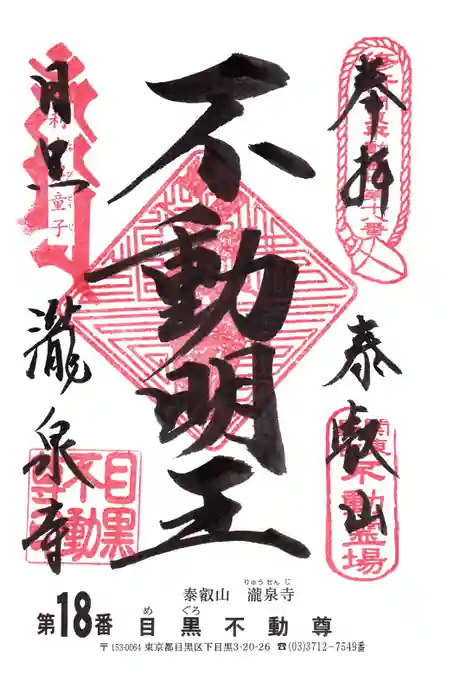 奉拝
泰叡山
不動明王
月旦
瀧泉寺
童子
関東
不動霊場
目黒
不動
りゅうせんじ
泰叡山 瀧泉寺
めぐろ
第18番 目黒不動尊
〒153-0064 東京都目黒区下目黒3-20-26 ☎(03)3712-7549番